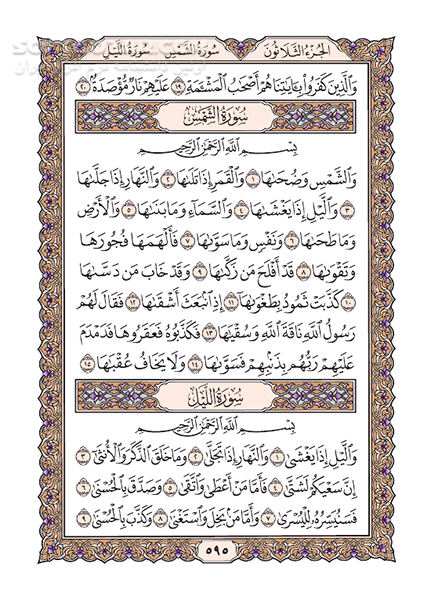 الجُزْءُ الثَّلَاثُونَ سُورَةُ الشَّمْسِ سُورَةُ اللَّيْلِ
وَالَّذِينَ كَفَرُوا۟ بِـَٔايَٰتِنَا هُمْ أَصْحَٰبُ ٱلْمَشْـَٔمَةِ ١٩ عَلَيْهِمْ نَارٌ مُّؤْصَدَةٌۢ ٢٠
سُورَةُ الشَّمْسِ
بِسْمِ ٱللَّهِ ٱلرَّحْمَٰنِ ٱلرَّحِيمِ
وَٱلشَّمْسِ وَضُحَىٰهَا ١ وَٱلْقَمَرِ إِذَا تَلَىٰهَا ٢ وَٱلنَّهَارِ إِذَا جَلَّىٰهَا
٣ وَٱلَّيْلِ إِذَا يَغْشَىٰهَا ٤ وَٱلسَّمَآءِ وَمَا بَنَىٰهَا ٥ وَٱلْأَرْضِ
وَمَا طَحَىٰهَا ٦ وَنَفْسٍ وَمَا سَوَّىٰهَا ٧ فَأَلْهَمَهَا فُجُورَهَا
وَتَقْوَىٰهَا ٨ قَدْ أَفْلَحَ مَن زَكَّىٰهَا ٩ وَقَدْ خَابَ مَن دَسَّىٰهَا
١٠ كَذَّبَتْ ثَمُودُ بِطَغْوَىٰهَآ ١١ إِذِ ٱنۢبَعَثَ أَشْقَىٰهَا ١٢ فَقَالَ لَهُمْ
رَسُولُ ٱللَّهِ نَاقَةَ ٱللَّهِ وَسُقْيَٰهَا ١٣ فَكَذَّبُوهُ فَعَقَرُوهَا فَدَمْدَمَ
عَلَيْهِمْ رَبُّهُم بِذَنۢبِهِمْ فَسَوَّىٰهَا ١٤ وَلَا يَخَافُ عُقْبَٰهَا ١٥
سُورَةُ اللَّيْلِ
بِسْمِ ٱللَّهِ ٱلرَّحْمَٰنِ ٱلرَّحِيمِ
وَٱلَّيْلِ إِذَا يَغْشَىٰ ١ وَٱلنَّهَارِ إِذَا تَجَلَّىٰ ٢ وَمَا خَلَقَ ٱلذَّكَرَ وَٱلْأُنثَىٰٓ ٣
إِنَّ سَعْيَكُمْ لَشَتَّىٰ ٤ فَأَمَّا مَنْ أَعْطَىٰ وَٱتَّقَىٰ ٥ وَصَدَّقَ بِٱلْحُسْنَىٰ ٦
فَسَنُيَسِّرُهُۥ لِلْيُسْرَىٰ ٧ وَأَمَّا مَنۢ بَخِلَ وَٱسْتَغْنَىٰ ٨ وَكَذَّبَ بِٱلْحُسْنَىٰ ٩
٥٩٥